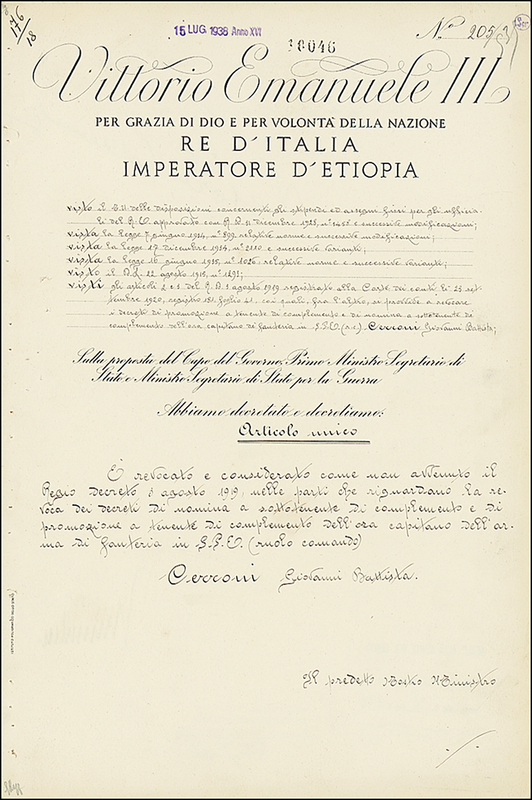 176
18
15 LUG. 1938 Anno XVI
38046
N° 205
Vittorio Emanuele III
PER GRAZIA DI DIO E PER VOLONTÀ DELLA NAZIONE
RE D'ITALIA
IMPERATORE D'ETIOPIA
visto il T.U. delle disposizioni concernenti gli stipendi ed assegni fissi per gli ufficia-
li del R.E. approvato con R.D. 31 dicembre 1928, n° 3458 e successive modificazioni;
vista la legge 7 giugno 1934, n° 899 relative norme e successive modificazioni;
vista la legge 17 dicembre 1934, n° 2110 e successive varianti;
vista la legge 16 giugno 1935, n° 1026, relative norme e successive varianti;
visto il D.L. 22 agosto 1915, n° 1291;
visti gli articoli 2 e 3 del R.D. 3 agosto 1919 registrato alla Corte dei conti li 23 set-
tembre 1920, registro fol. coi quali, fra l'altro, si provvede a revocare
i decreti di promozione a tenente di complemento e di nomina a sottotenente di
complemento dell'ora capitano di fanteria in S.P.E. (r.c.) Cerroni Giovanni Battista;
Sulla proposta del Capo del Governo, Primo Ministro Segretario di
Stato e Ministro Segretario di Stato per la Guerra
Abbiamo decretato e decretiamo:
Articolo unico
È revocato e considerato come non avvenuto il
Regio Decreto 3 agosto 1919, nelle parti che riguardano la re-
voca dei decreti di nomina a sottotenente di complemento e di
promozione a tenente di complemento dell'ora capitano dell'ar-
ma di fanteria in S.P.E. (ruolo comando)
Cerroni Giovanni Battista.
Il predetto Nostro Ministro